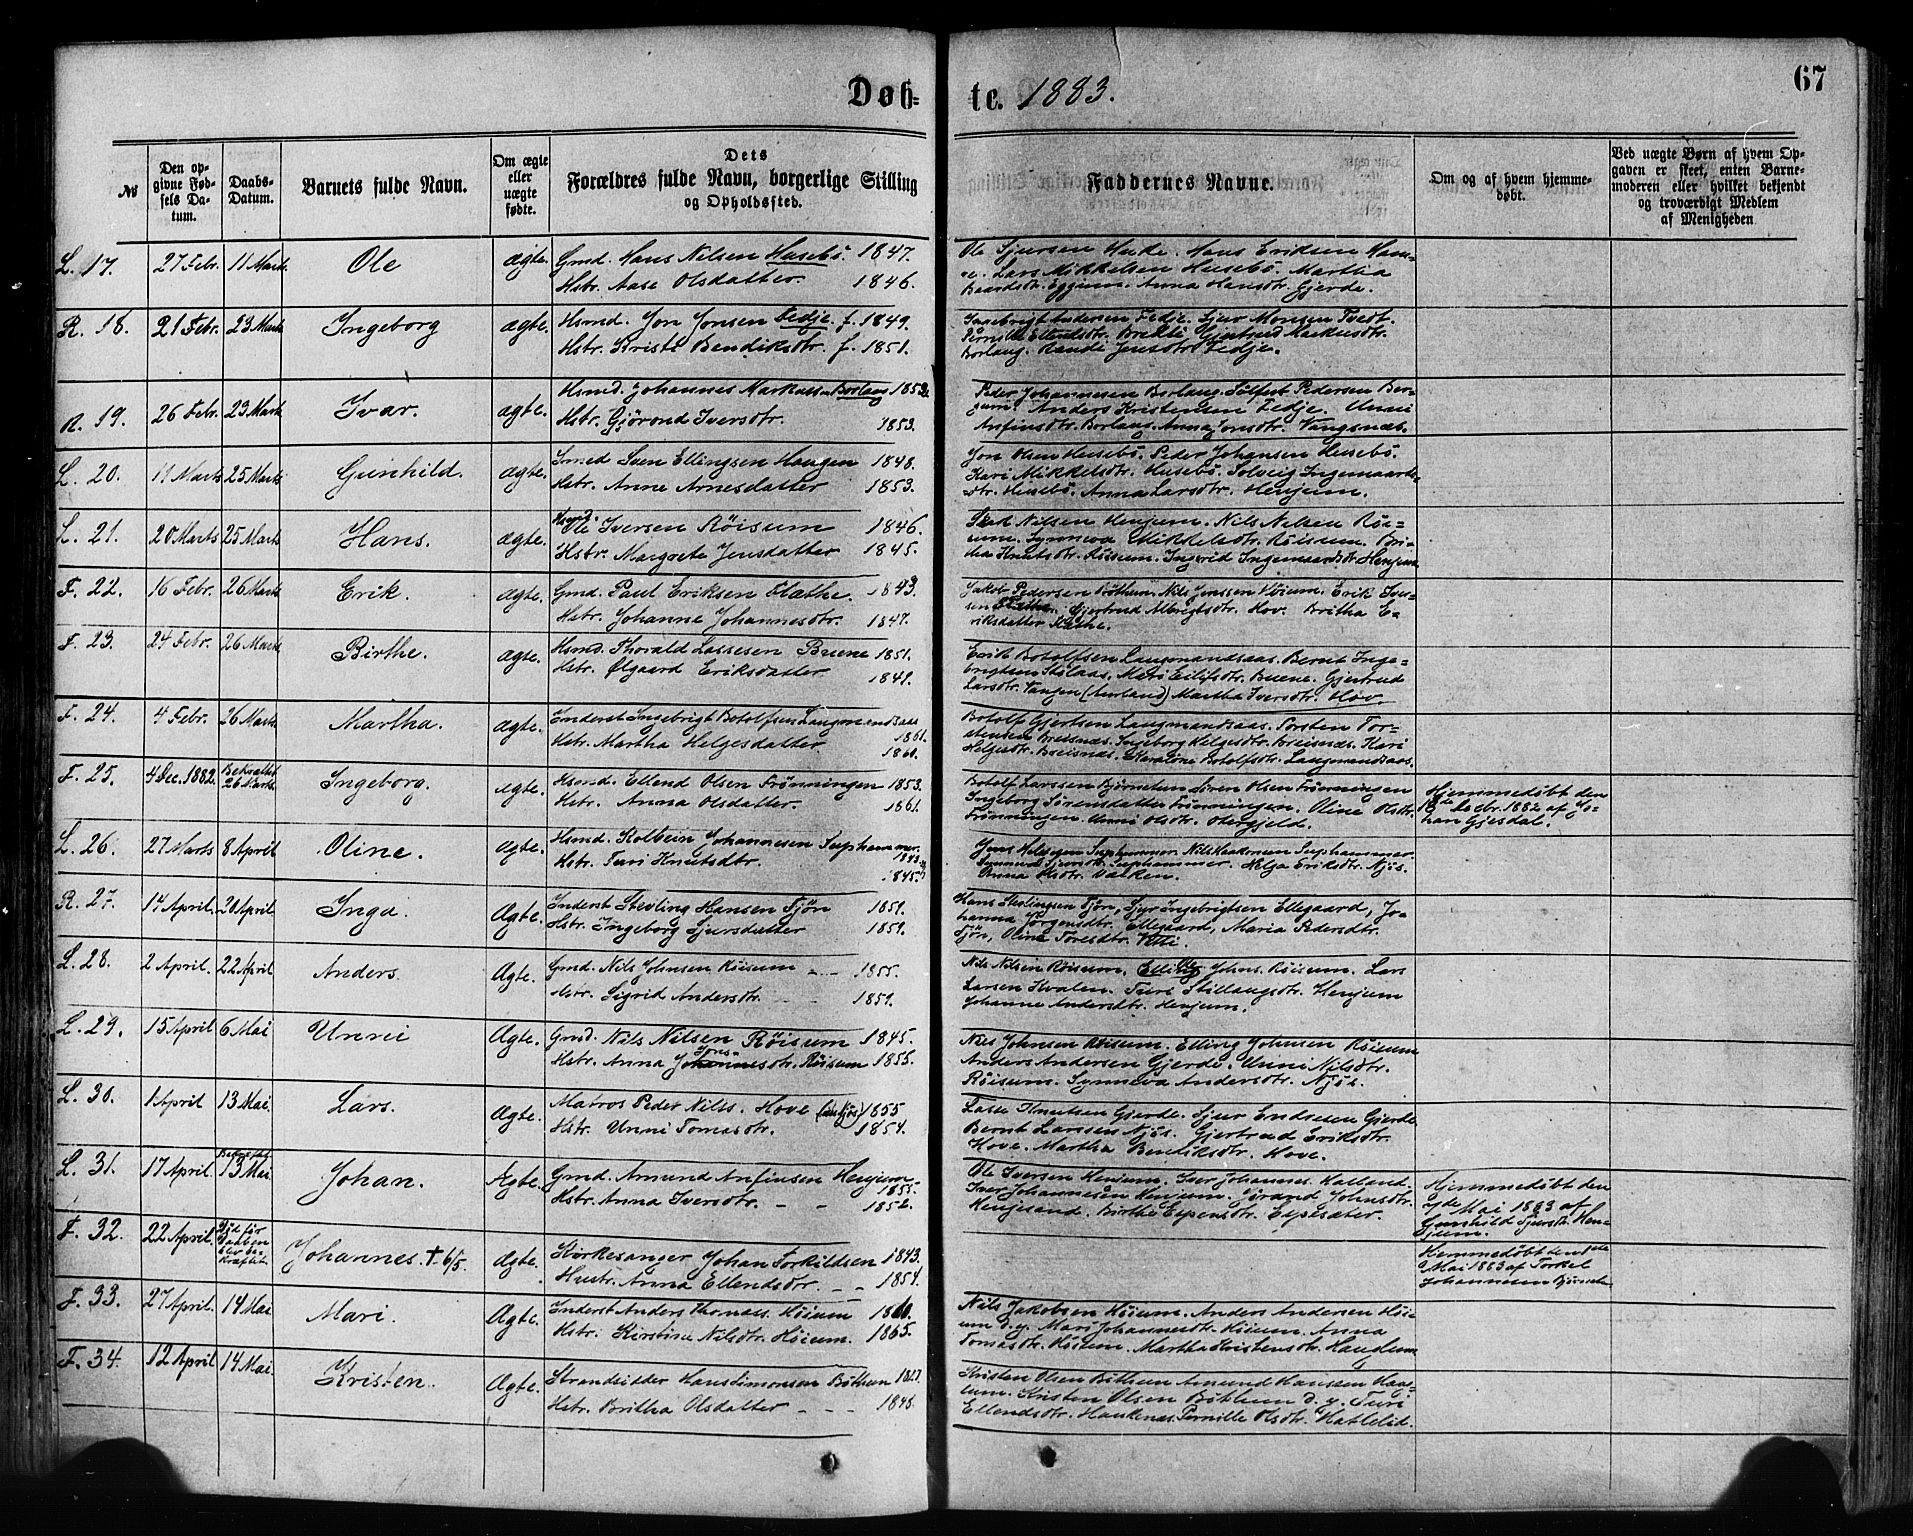 Døb-
te. 1883.
67
№
Den opgivne Fødsels Datum.
Daabs-Datum.
Barnets fulde Navn.
Om ægte eller uægte fødte.
Dets Forældres fulde Navn, borgerlige Stilling og Opholdssted.
Faddernes Navne.
Om og af hvem hjemmedøbt.
Ved uægte Børn af hvem Opgaven er skeet, enten Barnemoderen eller hvilket bekjendt og troværdigt Medlem af Menigheden
L. 17. 27 Febr. 11 Marts Ole ægte. Gmd. Hans Nilsen Husebö. 1847.
Hstr. Aase Olsdatter. 1846.
Ole Sjursen Hude. Hans Eriksen Ham-
re. Lars Mikkelsen Husebö. Martha
Baardsdtr. Eggum. Anna Hansdtr. Gjerde.
R. 18. 21 Febr. 23 Marts Ingeborg ægte. Hsmd. Jon Jonsen Fedje. f. 1849.
Hstr. Kristi Bendiksdtr. f. 1851.
Ingebrigt Andersen Fedje. Sjur Monsen Tvedt.
Pernille Ellendsdtr. Brekke Gjertrud Markusdtr.
Borlaug. Rande Jensdtr. Fedje.
R. 19. 26 Febr. 23 Marts Ivar. ægte. Hsmd. Johannes Markussen Borlaug 1853.
Hstr. Gjörond Iversdtr. 1853.
Peder Johannesen Borlaug. Sölfest Pedersen Ber-
gum. Anders Kristensen Fedje. Unni
Anfinsdtr. Borlaug. Anna Jonsdtr. Vangsnæs.
L. 20. 11 Marts 25 Marts Gunhild. ægte. Smed Sven Ellingsen Haugen 1848.
Hstr. Anne Arnesdatter 1853.
Jon Olsen Husebö. Peder Johansen Husebö.
Kari Mikkelsdtr. Husebö. Solveig Ingemaards-
dtr. Husebö. Anna Larsdtr. Henjum.
L. 21. 20 Marts 25 Marts Hans. ægte. Hsmd. Ole Iversen Röisum 1846.
Hstr. Margrete Jensdatter 1845.
Nilsen Henjum. Nils Nilsen Röi-
sum. Synneva Mikkelsdtr. Röisum. Bri-
tha Knutsdtr. Röisum. Ingerid Ingemaardsdtr. Henjum
F. 22. 16 Febr. 26 Marts Erik. ægte. Gmd. Paul Eriksen Flæthe. 1843.
Hstr. Johanne Johannesdtr. 1847.
Jakob Pedersen Böthum. Nils Jenssen Höium. Erik Iver-
sen Gjertrud Albrigtsdtr. Hov. Britha E-
riksdatter
F. 23. 24 Febr. 26 Marts Birthe. ægte. Hsmd. Thorald Lassesen Buene 1851.
Hstr. Ølgaard Eriksdatter 1849.
Erik Botolfsen Laugmandsaas. Bernt Inge-
brigtsen Mari Eilifsdtr. Buene. Gjertrud
Larsdtr. Vangen (Aurland) Martha Iversdtr. Hov.
F. 24. 4 Febr. 26 Marts Martha. ægte. Inderst Ingebrigt Botolfsen Laugmandsaas
1861.
Hstr. Martha Helgesdatter 1860.
Botolf Gjertsen Laugmandsaas. Torsten Tor-
stensen Breisnæs. Ingeborg Helgesdtr. Breisnæs. Kari
Helgesdtr. Breisnæs. Karalone Botolfsdtr. Laugmandsaas.
F. 25. 4 Dec. 1882. Bekræftet 26 Marts. Ingeborg. ægte. Hsmd. Ellend Olsen Frönningen 1853.
Hstr. Anna Olsdatter. 1861.
Botolf Larssen Björnetun Sören Olsen Frönningen
Ingeborg Sörensdatter Frönningen. Oline Olsdtr.
Frönningen. Unni Olsdtr. Obergjeld.
Hjemmedøbt den
18de Decbr. 1882 af Jo-
han Gjesdal.
L. 26. 27 Marts 8 April Oline. ægte. Hsmd. Kolbein Johannesen Suphammer.
1843.
Hstr. Turi Knutsdtr. 1845.
Jens Helgesen Suphammer. Nils Haakensen Suphammer.
Synneva Sjursdtr. Suphammer. Helga Eriksdtr. Njös.
Anna Olsdtr. Valken.
R. 27. 14 April. 20 April Inga. Ægte. Inderst Sterling Hansen Tjön 1859.
Hstr. Ingeborg Sjursdatter 1859.
Hans Sterlingsen Tjön, Sjur Ingebrigtsen Ellegaard, Jo-
hanna Jörgensdtr. Ellegaard, Maria Pedersdtr.
Tjön, Oline Toresdtr. Vetti.
L. 28. 2 April. 22 April Anders. Ægte. Gmd. Nils Johnsen Röisum 1855.
Hstr. Sigrid Andersdtr. 1859.
Nils Nilsen Röisum. Elling Johns. Röisum. Lars
Larsen Kvalen. Turi Stillaugsdtr. Henjum
Johanne Andersdtr. Henjum.
L. 29. 15 April 6 Mai Unni Ægte. Gmd. Nils Nilsen Röisum 1845.
Hstr. Anna Johannesdtr. Röisum 1855.
Nils Johnsen Röisum. Elling Johnsen Röisum
Anders Andersen Gjerde. Unni Nilsdtr.
Röisum. Synneva Andersdtr. Njös.
L. 30. 1 April 13 Mai. Lars. Ægte. Matros Peder Nils. Hove 1855
Hstr. Unni Tomasdtr. 1854.
Lasse Knutsen Gjerde. Sjur Endresen Gjerde
Bernt Larssen Njös. Gjertrud Eriksdtr.
Hove. Martha Bendiksdtr. Hove.
L. 31. 17 April. Bekræftet 13 Mai. Johan. Ægte. Gmd. Amund Anfinsen Henjum
1855.
Hstr. Anna Iversdtr. 1852.
Ole Iversen Henjum. Iver Johannes. Hatland.
Iver Johannesen Henjum. Jörand Johnsdtr.
Henjesand. Birthe Espensdtr. Espesæter.
Hjemmedøbt den
2de Mai 1883 af
Gunhild Sjursdtr. Hen-
jum.
F. 32. 22 April. Död før Daaben blev be-kræftet Johannes. † 6/5. Ægte. Kirkesanger Johan Torkildsen 1843.
Hustr. Anna Ellendsdtr. 1854.
Hjemmedøbt den
Mai 1883 af Torkel
Johannesen
F. 33. 27 April. 14 Mai Mari. Ægte. Inderst Anders Thomass. Höium 1860.
Hstr. Kirstine Nilsdtr. Höium. 1865.
Nils Jakobsen Höium. Anders Andersen Höi-
um d.y. Mari Johannesdtr. Höium. Anna
Tomasdtr. Höium. Martha Kristensdtr. Haugum
F. 34. 12 April 14 Mai. Kristen. Ægte. Strandsidder Hans Simonsen Böthun 1847.
Hstr. Britha Olsdatter 1848.
Kristen Olsen Böthun Amund Hanssen Haa-
um. Kristen Olsen Böthun d.y. Turi
Ellendsdtr. Haukenæs. Pernille Olsdtr. Hattelid.